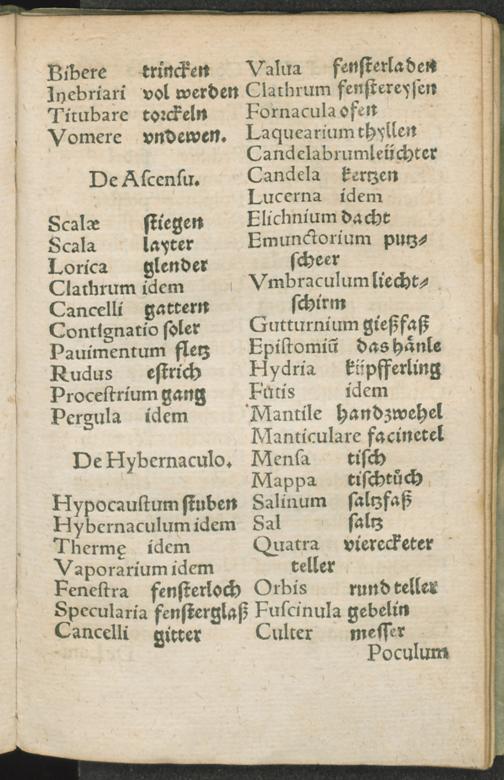 Bibere trincken
Inebriari vol werden
Titubare torckeln
Vomere vndewen.
De Ascensu.
Scalæ stiegen
Scala layter
Lorica glender
Clathrum idem
Cancelli gattern
Contignatio soler
Pauimentum fletz
Rudus estrich
Procestrium gang
Pergula idem
De Hybernaculo.
Hypocaustum stuben
Hybernaculum idem
Thermę idem
Vaporarium idem
Fenestra fensterloch
Specularia fensterglaß
Cancelli gitter
Valua fensterladen
Clathrum fenstereysen
Fornacula ofen
Laquearium thyllen
Candelabrum leüchter
Candela kertzen
Lucerna idem
Elichnium dacht
Emunctorium putz⸗
scheer
Vmbraculum liecht⸗
schirm
Gutturnium gießfaß
Epistomiũ das hänle
Hydria küpfferling
Fůtis idem
Mantile handzwehel
Manticulare facinetel
Mensa tisch
Mappa tischtůch
Salinum saltzfaß
Sal saltz
Quatra vierecketer
teller
Orbis rund teller
Fuscinula gebelin
Culter messer
Poculum